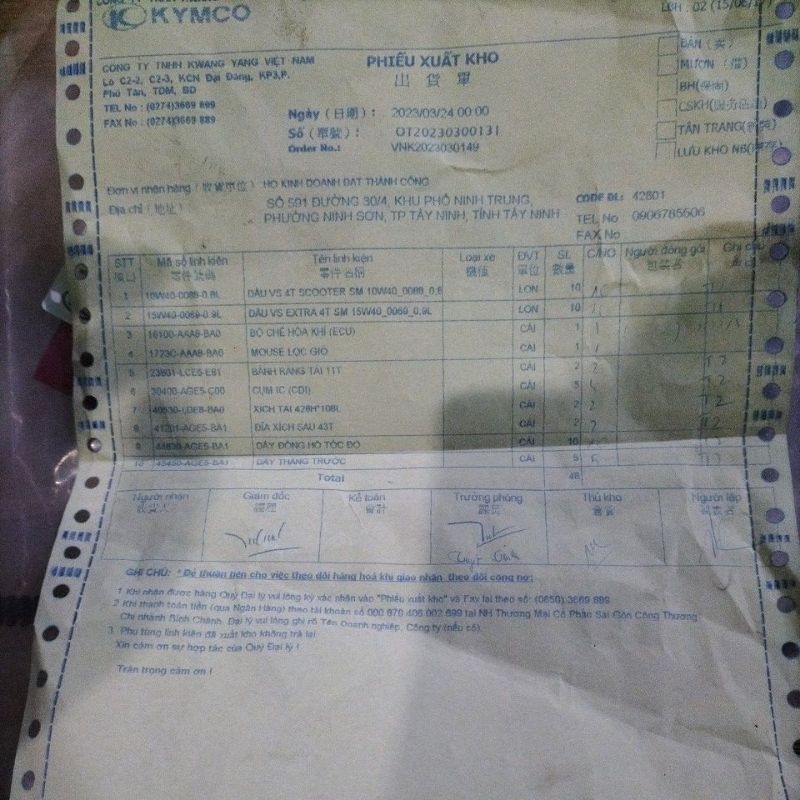 KYMCO
LBH : 02
CÔNG TY TNHH KWANG YANG VIỆT NAM
Lô C2-2, C2-3, KCN Đại Đăng, KP3,P.
Phú Tân, TDM, BD
TEL No : (0274)3669 889
FAX No : (0274)3669 889
PHIẾU XUẤT KHO
出 貨 單
Ngày (日期) : 2023/03/24 00:00
Số (單號) : OT20230300131
Order No.: VNK2023030149
BÁN (买)
MƯỢN (借)
BH
CSKH
TÂN TRANG
LƯU KHO NB
Đơn vị nhận hàng HỘ KINH DOANH ĐẠT THÀNH CÔNG
Địa chỉ (地址) SỐ 591 ĐƯỜNG 30/4, KHU PHỐ NINH TRUNG,
PHƯỜNG NINH SƠN, TP TÂY NINH, TỈNH TÂY NINH
CODE ĐL: 42801
TEL No 0906785506
FAX No
STT Mã số linh kiện Tên linh kiện Loại xe ĐVT SL C/NO Người đóng gói Ghi chú
零件名稱 單位 數量
1 10W40-0088-0.8L DẦU VS 4T SCOOTER SM 10W40_0088_0,8 LON 10
2 15W40-0069-0.9L DẦU VS EXTRA 4T SM 15W40_0069_0,9L LON 10
3 16100-AAA8-BA0 BỘ CHẾ HÒA KHÍ (ECU) CÁI 1
4 1723C-AAA8-BA0 MOUSE LỌC GIÓ CÁI 1
5 23801-LCE5-E81 BÁNH RĂNG TẢI 11T CÁI 2
6 30400-AGE5-C00 CỤM IC (CDI) CÁI 5
7 40530-LDE8-BA0 XÍCH TẢI 428H*108L CÁI 2
8 41201-AGE5-BA1 ĐĨA XÍCH SAU 43T CÁI 2
9 44830-AGE5-BA1 DÂY ĐỒNG HỒ TỐC ĐỘ CÁI 10
10 45450-AGE5-BA1 DÂY THẮNG TRƯỚC CÁI 5
Total 48
Người nhận Giám đốc Kế toán Trưởng phòng Thủ kho Người lập
經理 會計 課長 倉管
GHI CHÚ: * Để thuận tiện cho việc theo dõi hàng hoá khi giao nhận theo dõi công nợ:
1 Khi nhận được hàng Quý Đại lý vui lòng ký xác nhận vào "Phiếu xuất kho" và Fax lại theo số: (0650) 3669 889
2 Khi thanh toán tiền (qua Ngân Hàng) theo tài khoản số 000 670 406 002 699 tại NH Thương Mại Cổ Phần Sài Gòn Công Thương
Chi nhánh Bình Chánh. Đại lý vui lòng ghi rõ Tên Doanh nghiệp, Công ty (nếu có).
3. Phụ tùng linh kiện đã xuất kho không trả lại
Xin cảm ơn sự hợp tác của Quý Đại lý !
Trân trọng cảm ơn !